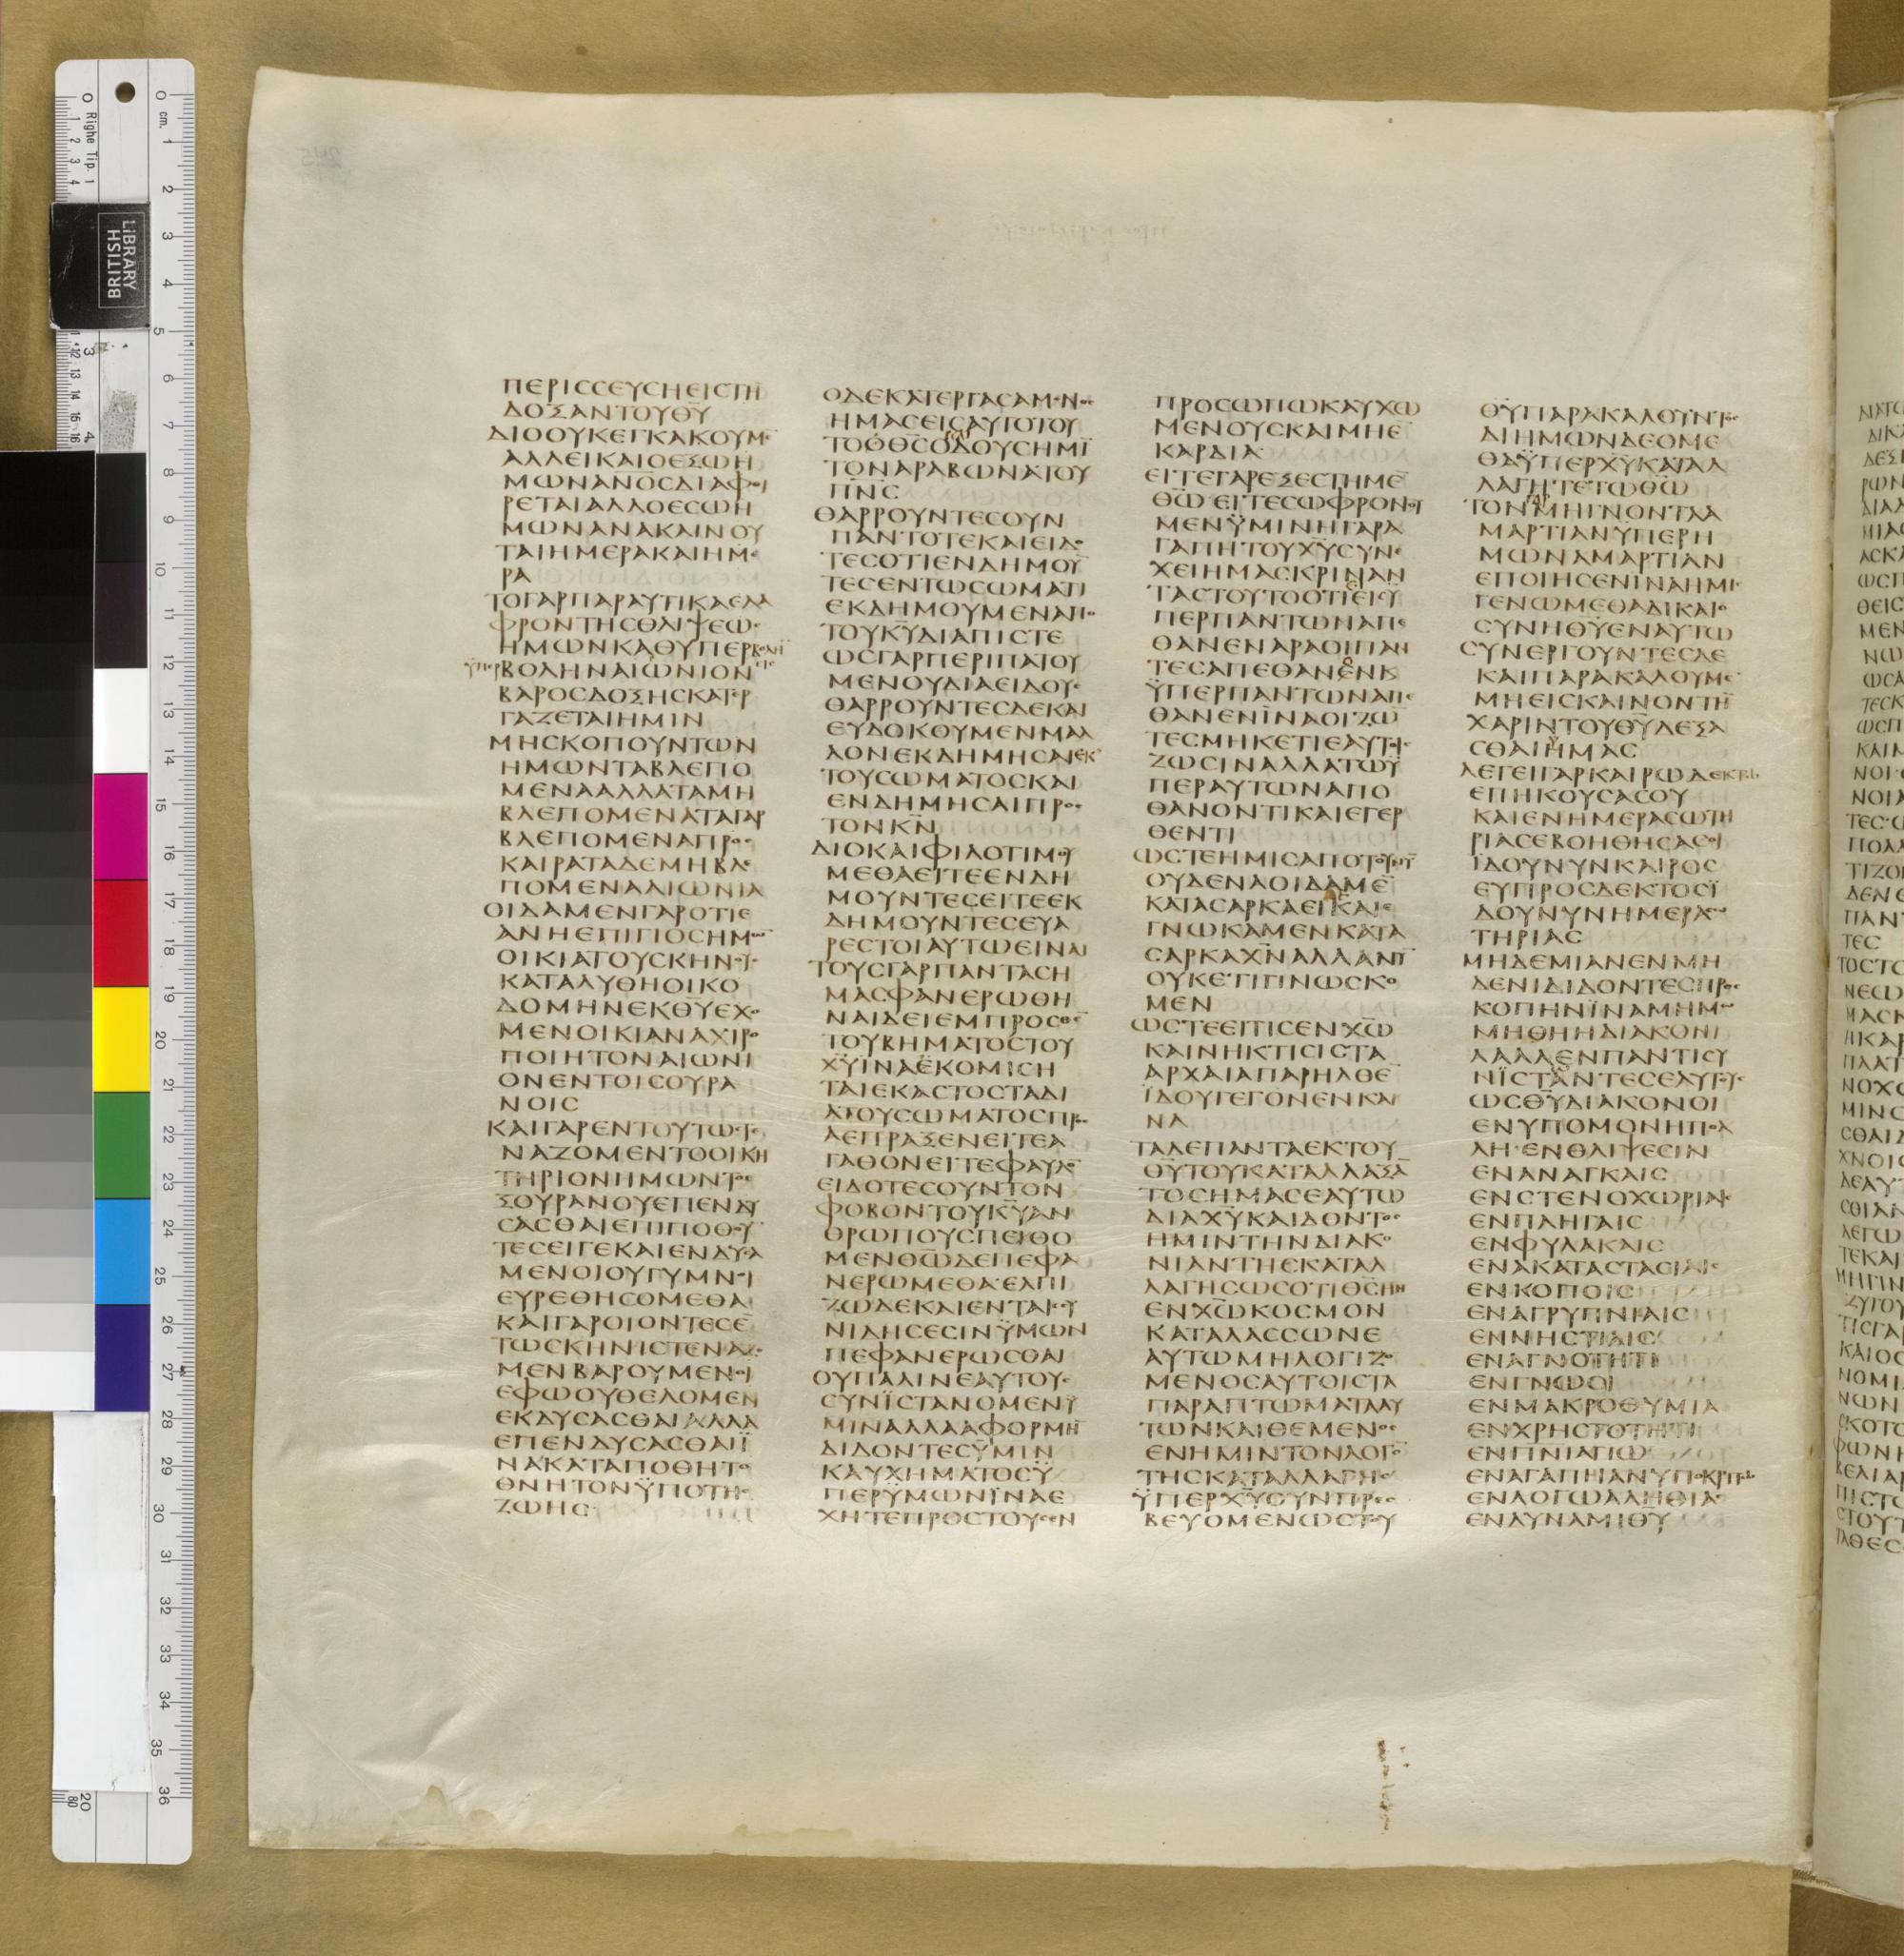 ΠΕΡΙΣΣΕΥΣΗΕΙΣΤΗ̅
ΔΟΞΑΝΤΟΥΘΥ̅
ΔΙΟΟΥΚΕΓΚΑΚΟΥΜΕ̅
ΑΛΛΕΙΚΑΙΟΕΞΩΗ
ΜΩΝΑΝΟΣΔΙΑΦΘΙ
ΡΕΤΑΙΑΛΛΟΕΣΩΗ
ΜΩΝΑΝΑΚΑΙΝΟΥ
ΤΑΙΗΜΕΡΑΚΑΙΗΜΕ
ΡΑ
ΤΟΓΑΡΠΑΡΑΥΤΙΚΑΕΛΑ
ΦΡΟΝΤΗΣΘΛΙΨΕΩΣ
ΗΜΩΝΚΑΘΥΠΕΡΒΟΛΗ̅
ΫΠΕΡΒΟΛΗΝΑΙΩΝΙΟΝ
ΒΑΡΟΣΔΟΞΗΣΚΑΤΕΡ
ΓΑΖΕΤΑΙΗΜΙΝ
ΜΗΣΚΟΠΟΥΝΤΩΝ
ΗΜΩΝΤΑΒΛΕΠΟ
ΜΕΝΑΑΛΛΑΤΑΜΗ
ΒΛΕΠΟΜΕΝΑΤΑΓΑΡ
ΒΛΕΠΟΜΕΝΑΠΡΟΣ
ΚΑΙΡΑΤΑΔΕΜΗΒΛΕ
ΠΟΜΕΝΑΑΙΩΝΙΑ
ΟΙΔΑΜΕΝΓΑΡΟΤΙΕ
ΑΝΗΕΠΙΓΙΟΣΗΜΩ̅
ΟΙΚΙΑΤΟΥΣΚΗΝΟΥΣ
ΚΑΤΑΛΥΘΗΟΙΚΟ
ΔΟΜΗΝΕΚΘΥ̅ΕΧΟ
ΜΕΝΟΙΚΙΑΝΑΧΙΡΟ
ΠΟΙΗΤΟΝΑΙΩΝΙ
ΟΝΕΝΤΟΙΣΟΥΡΑ
ΝΟΙΣ
ΚΑΙΓΑΡΕΝΤΟΥΤΩΣΤΕ
ΝΑΖΟΜΕΝΤΟΟΙΚΗ
ΤΗΡΙΟΝΗΜΩΝΤΟΕ
ΞΟΥΡΑΝΟΥΕΠΕΝΔΥ
ΣΑΣΘΑΙΕΠΙΠΟΘΟΥ̅
ΤΕΣΕΙΓΕΚΑΙΕΝΔΥΣΑ
ΜΕΝΟΙΟΥΓΥΜΝΟΙ
ΕΥΡΕΘΗΣΟΜΕΘΑ
ΚΑΙΓΑΡΟΙΟΝΤΕΣΕ̅
ΤΩΣΚΗΝΙΣΤΕΝΑΖΟ
ΜΕΝΒΑΡΟΥΜΕΝΟΙ
ΕΦΩΟΥΘΕΛΟΜΕΝ
ΕΚΔΥΣΑΣΘΑΙΑΛΛΑ
ΕΠΕΝΔΥΣΑΣΘΑΙΪ
ΝΑΚΑΤΑΠΟΘΗΤΟ
ΘΝΗΤΟΝΫΠΟΤΗΣ
ΖΩΗΣ
ΟΔΕΚΑΤΕΡΓΑΣΑΜΕΝΟΣ
ΗΜΑΣΕΙΣΑΥΤΟΤΟΥ
ΤΟΟΘΣ̅ΟΔΟΥΣΗΜΙ̅
ΤΟΝΑΡΑΒΩΝΑΤΟΥ
ΠΝ̅Σ
ΘΑΡΡΟΥΝΤΕΣΟΥΝ
ΠΑΝΤΟΤΕΚΑΙΕΙΔΟ
ΤΕΣΟΤΙΕΝΔΗΜΟΥ̅
ΤΕΣΕΝΤΩΣΩΜΑΤΙ
ΕΚΔΗΜΟΥΜΕΝΑΠΟ
ΤΟΥΚΥ̅ΔΙΑΠΙΣΤΕ
ΩΣΓΑΡΠΕΡΙΠΑΤΟΥ
ΜΕΝΟΥΔΙΑΕΙΔΟΥΣ
ΘΑΡΡΟΥΝΤΕΣΔΕΚΑΙ
ΕΥΔΟΚΟΥΜΕΝΜΑΛ
ΛΟΝΕΚΔΗΜΗΣΑΙΕΚ
ΤΟΥΣΩΜΑΤΟΣΚΑΙ
ΕΝΔΗΜΗΣΑΙΠΡΟΣ
ΤΟΝΚΝ̅
ΔΙΟΚΑΙΦΙΛΟΤΙΜΟΥ
ΜΕΘΑΕΙΤΕΕΝΔΗ
ΜΟΥΝΤΕΣΕΙΤΕΕΚ
ΔΗΜΟΥΝΤΕΣΕΥΑ
ΡΕΣΤΟΙΑΥΤΩΕΙΝΑΙ
ΤΟΥΣΓΑΡΠΑΝΤΑΣΗ
ΜΑΣΦΑΝΕΡΩΘΗ
ΝΑΙΔΕΙΕΜΠΡΟΣΘΕ̅
ΤΟΥΒΗΜΑΤΟΣΤΟΥ
ΧΥ̅ΪΝΑΕΚΟΜΙΣΗ
ΤΑΙΕΚΑΣΤΟΣΤΑΔΙ
ΑΤΟΥΣΩΜΑΤΟΣΠΡΟΣ
ΑΕΠΡΑΞΕΝΕΙΤΕΑ
ΓΑΘΟΝΕΙΤΕΦΑΥΛΟ̅
ΕΙΔΟΤΕΣΟΥΝΤΟΝ
ΦΟΒΟΝΤΟΥΚΥ̅ΑΝ
ΘΡΩΠΟΥΣΠΕΙΘΟ
ΜΕΝΘΩ̅ΔΕΠΕΦΑ
ΝΕΡΩΜΕΘΑΕΛΠΙ
ΖΩΔΕΚΑΙΕΝΤΑΙΣΣΥ
ΝΙΔΗΣΕΣΙΝΫΜΩΝ
ΠΕΦΑΝΕΡΩΣΘΑΙ
ΟΥΠΑΛΙΝΕΑΥΤΟΥΣ
ΣΥΝΪΣΤΑΝΟΜΕΝΫ
ΜΙΝΑΛΛΑΑΦΟΡΜΗ̅
ΔΙΔΟΝΤΕΣΫΜΙΝ
ΚΑΥΧΗΜΑΤΟΣΫ
ΠΕΡΥΜΩΝΪΝΑΕ
ΧΗΤΕΠΡΟΣΤΟΥΣΕΝ
ΠΡΟΣΩΠΩΚΑΥΧΩ
ΜΕΝΟΥΣΚΑΙΜΗΕ̅
ΚΑΡΔΙΑ
ΕΙΤΕΓΑΡΕΞΕΣΤΗΜΕ̅
ΘΩ̅ΕΙΤΕΣΩΦΡΟΝΟΥ
ΜΕΝΫΜΙΝΗΓΑΡΑ
ΓΑΠΗΤΟΥΧΥ̅ΣΥΝΕ
ΧΕΙΗΜΑΣΚΡΙΝΑΝ
ΤΑΣΤΟΥΤΟΟΤΙΕΙΣΥ
ΠΕΡΠΑΝΤΩΝΑΠΕ
ΘΑΝΕΝΑΡΑΟΙΠΑΝ
ΤΕΣΑΠΕΘΑΝΕΝΚ
ΫΠΕΡΠΑΝΤΩΝΑΠΕ
ΘΑΝΕΝΪΝΑΟΙΖΩ̅
ΤΕΣΜΗΚΕΤΙΕΑΥΤΟΙΣ
ΖΩΣΙΝΑΛΛΑΤΩΫ
ΠΕΡΑΥΤΩΝΑΠΟ
ΘΑΝΟΝΤΙΚΑΙΕΓΕΡ
ΘΕΝΤΙ
ΩΣΤΕΗΜΙΣΑΠΟΤΟΥΝΥ̅
ΟΥΔΕΝΑΟΙΔΑΜΕ̅
ΚΑΤΑΣΑΡΚΑΕΙΚΑΙΕ
ΓΝΩΚΑΜΕΝΚΑΤΑ
ΣΑΡΚΑΧΝ̅ΑΛΛΑΝΥ̅
ΟΥΚΕΤΙΓΙΝΩΣΚΟ
ΜΕΝ
ΩΣΤΕΕΙΤΙΣΕΝΧΩ̅
ΚΑΙΝΗΚΤΙΣΙΣΤΑ
ΑΡΧΑΙΑΠΑΡΗΛΘΕ̅
ΪΔΟΥΓΕΓΟΝΕΝΚΑΙ
ΝΑ
ΤΑΔΕΠΑΝΤΑΕΚΤΟΥ
ΘΥ̅ΤΟΥΚΑΤΑΛΛΑΞΑ̅
ΤΟΣΗΜΑΣΕΑΥΤΩ
ΔΙΑΧΥ̅ΚΑΙΔΟΝΤΟΣ
ΗΜΙΝΤΗΝΔΙΑΚΟ
ΝΙΑΝΤΗΣΚΑΤΑΛ
ΛΑΓΗΣΩΣΟΤΙΘΣ̅ΗΝ
ΕΝΧΩ̅ΚΟΣΜΟΝ
ΚΑΤΑΛΑΣΣΩΝΕ
ΑΥΤΩΜΗΛΟΓΙΖΟ
ΜΕΝΟΣΑΥΤΟΙΣΤΑ
ΠΑΡΑΠΤΩΜΑΤΑΑΥ
ΤΩΝΚΑΙΘΕΜΕΝΟΣ
ΕΝΗΜΙΝΤΟΝΛΟΓΟ̅
ΤΗΣΚΑΤΑΛΛΑΓΗΣ
ΫΠΕΡΧΥ̅ΟΥΝΠΡΕΣ
ΒΕΥΟΜΕΝΩΣΤΟΥ
ΘΥ̅ΠΑΡΑΚΑΛΟΥΝΤΟΣ
ΔΙΗΜΩΝΔΕΟΜΕ
ΘΑΫΠΕΡΧΥ̅ΚΑΤΑΛ
ΛΑΓΗΤΕΤΩΘΩ̅
ΤΟΝΜΗΓΝΟΝΤΑΑ
ΜΑΡΤΙΑΝΫΠΕΡΗ
ΜΩΝΑΜΑΡΤΙΑΝ
ΕΠΟΙΗΣΕΝΪΝΑΗΜΙΣ
ΓΕΝΩΜΕΘΑΔΙΚΑΙΟ
ΣΥΝΗΘΥ̅ΕΝΑΥΤΩ
ΣΥΝΕΡΓΟΥΝΤΕΣΔΕ
ΚΑΙΠΑΡΑΚΑΛΟΥΜΕ̅
ΜΗΕΙΣΚΑΙΝΟΝΤΗ̅
ΧΑΡΙΝΤΟΥΘΥ̅ΔΕΞΑ
ΣΘΑΙΗΜΑΣ
ΛΕΓΕΙΓΑΡΚΑΙΡΩΔΕΚΤΩ
ΕΠΗΚΟΥΣΑΣΟΥ
ΚΑΙΕΝΗΜΕΡΑΣΩΤΗ
ΡΙΑΣΕΒΟΗΘΗΣΑΣΟΙ
ΪΔΟΥΝΥΝΚΑΙΡΟΣ
ΕΥΠΡΟΣΔΕΚΤΟΣΪ
ΔΟΥΝΥΝΗΜΕΡΑΣΩ
ΤΗΡΙΑΣ
ΜΗΔΕΜΙΑΝΕΝΜΗ
ΔΕΝΙΔΙΔΟΝΤΕΣΠΡΟΣ
ΚΟΠΗΝΪΝΑΜΗΜΩ
ΜΗΘΗΗΔΙΑΚΟΝΙ
ΑΑΛΛΕΝΠΑΝΤΙΣΥ
ΝΪΣΤΑΝΤΕΣΕΑΥΤΟΥΣ
ΩΣΘΥ̅ΔΙΑΚΟΝΟΙ
ΕΝΥΠΟΜΟΝΗΠΟΛ
ΛΗΕΝΘΛΙΨΕΣΙΝ
ΕΝΑΝΑΓΚΑΙΣ
ΕΝΣΤΕΝΟΧΩΡΙΑΙΣ
ΕΝΠΛΗΓΑΙΣ
ΕΝΦΥΛΑΚΑΙΣ
ΕΝΑΚΑΤΑΣΤΑΣΙΑΙΣ
ΕΝΚΟΠΟΙΣ
ΕΝΑΓΡΥΠΝΙΑΙΣ
ΕΝΝΗΣΤΙΑΙΣ
ΕΝΑΓΝΟΤΗΤΙ
ΕΝΓΝΩΣΙ
ΕΝΜΑΚΡΟΘΥΜΙΑ
ΕΝΧΡΗΣΤΟΤΗΤΙ
ΕΝΠΝΙ̅ΑΓΙΩ
ΕΝΑΓΑΠΗΑΝΥΠΟΚΡΙΤΩ
ΕΝΛΟΓΩΑΛΗΘΙΑΣ
ΕΝΔΥΝΑΜΙΘΥ̅
BRITISH
LIBRARY
Righe Tip.
cm.